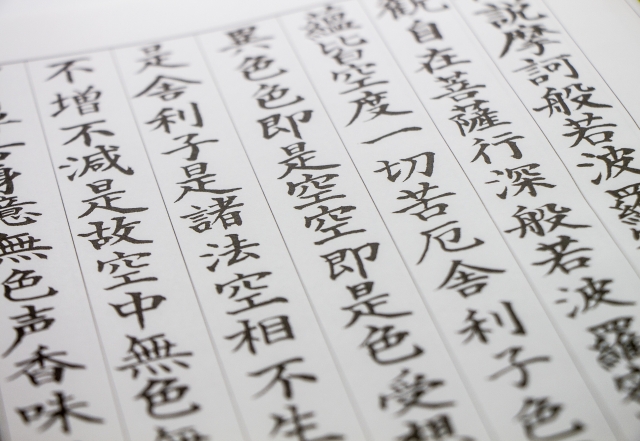 説摩訶般若波羅
観自在菩薩行深般若波羅
蘊皆空度一切苦厄舎利子色
異色色即是空空即是色受想
是舎利子是諸法空相不生
不増不減是故空中無色無
舌身意無色声香味